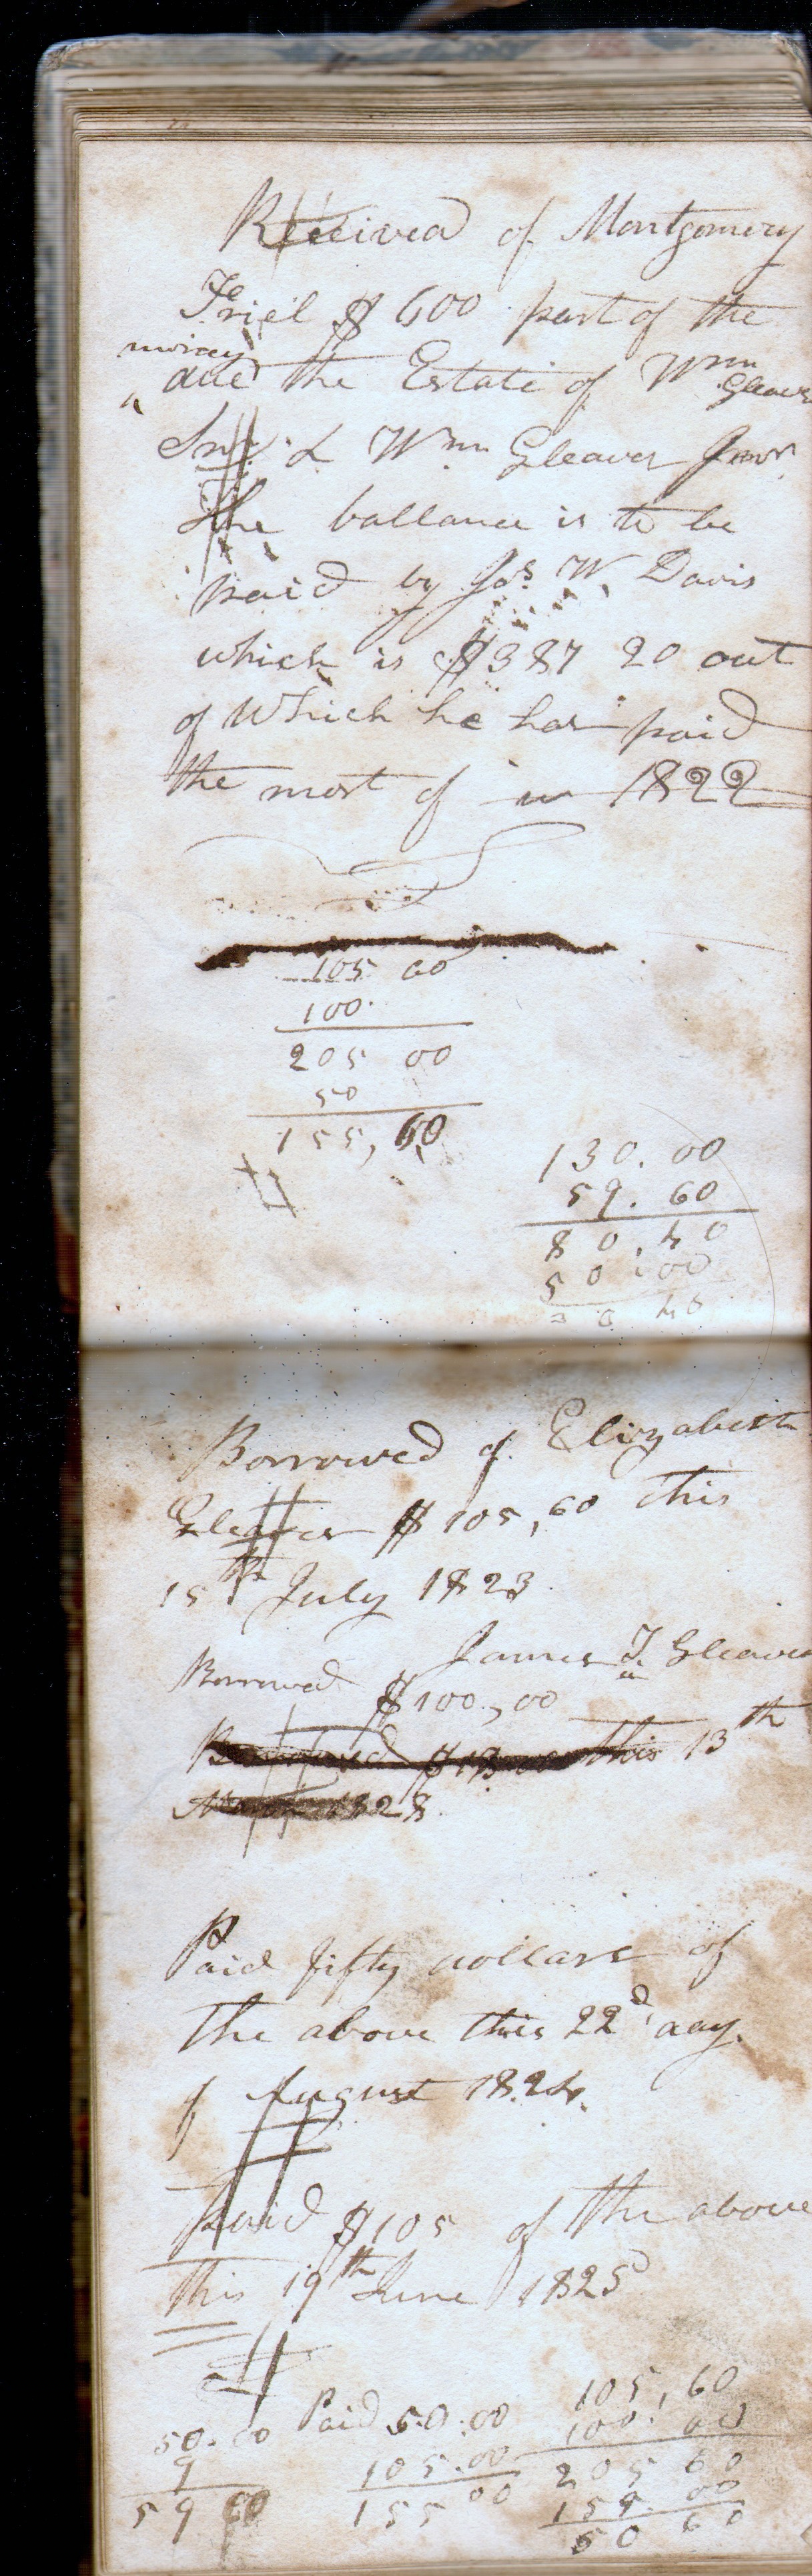 Received of Montgomery
Friel $ 600 part of the
money
due the Estate of Wm
Gleaves
Snr. & Wm Gleaves Junr
The ballance is to be
paid by Jas. W. Davis
which is $387 20 out
of Which he has paid
the most of in 1822
105 60
100.
205 00
50
155, 60
130. 00
59. 60
80. 40
50 00
30 40
Borrowed of Elizabeth
Gleaves $ 105, 60 this
15th July 1823
James T Gleaves
Borrowed
$100, 00
Borrowed this 13th
1828.
Paid fifty dollars of
the above this 22d day
of August 1824.
Paid $105 of the above
this 19th June 1825
50. 60
9
59 60
Paid 50:00
105.00
155 00
105, 60
100. 00
205 60
155. 00
50 60